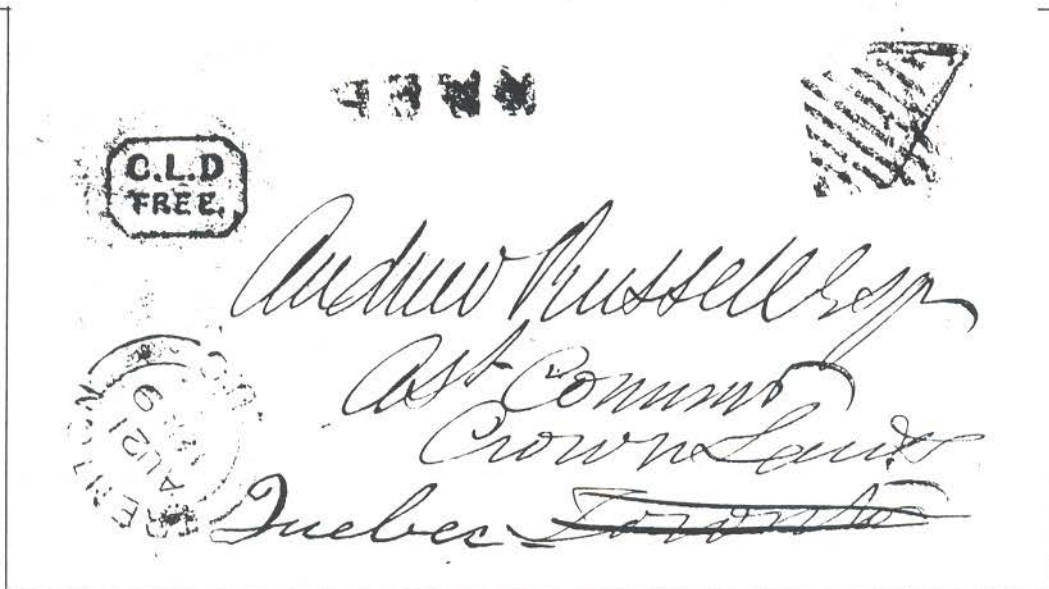 C.L.D
FREE.
Andrew Russell Esqr
Asst Commr
Crown Lands
Quebec - Toronto
TRENTON
AU 21